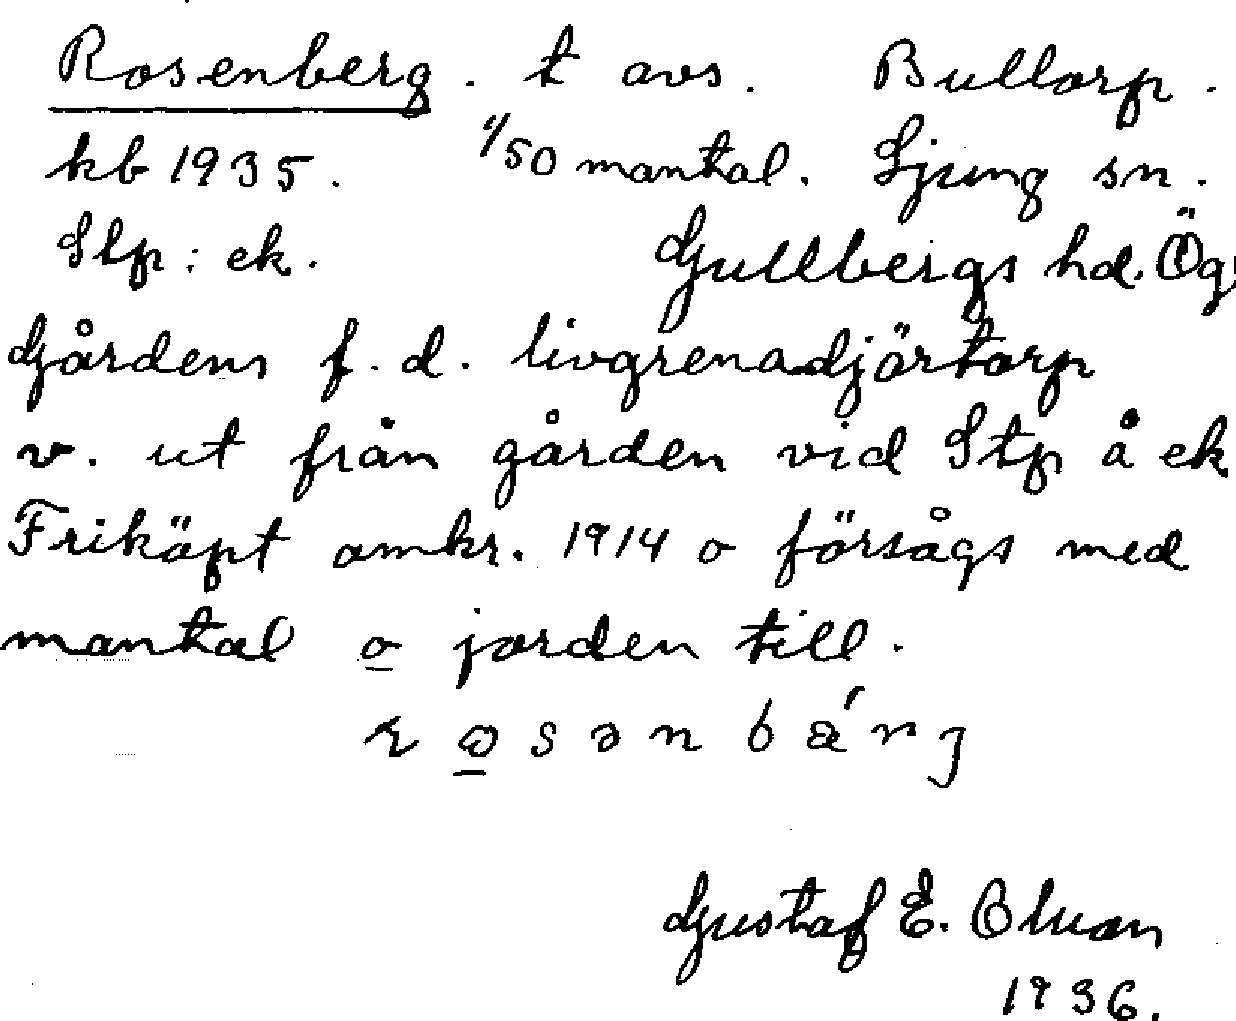 Rosenberg. t avs. Bullorp.
kb 1935. 1/50 mantal. Ljung sn.
Stp: ek. Gullbergs hd. Ög
Gårdens f. d. livgrenadjörtorp
v. ut från gården vid Stp å ek
Friköpt omkr. 1914 o försågs med
mantal o jorden till.
rosənbä́rj
Gustaf E.
1936.